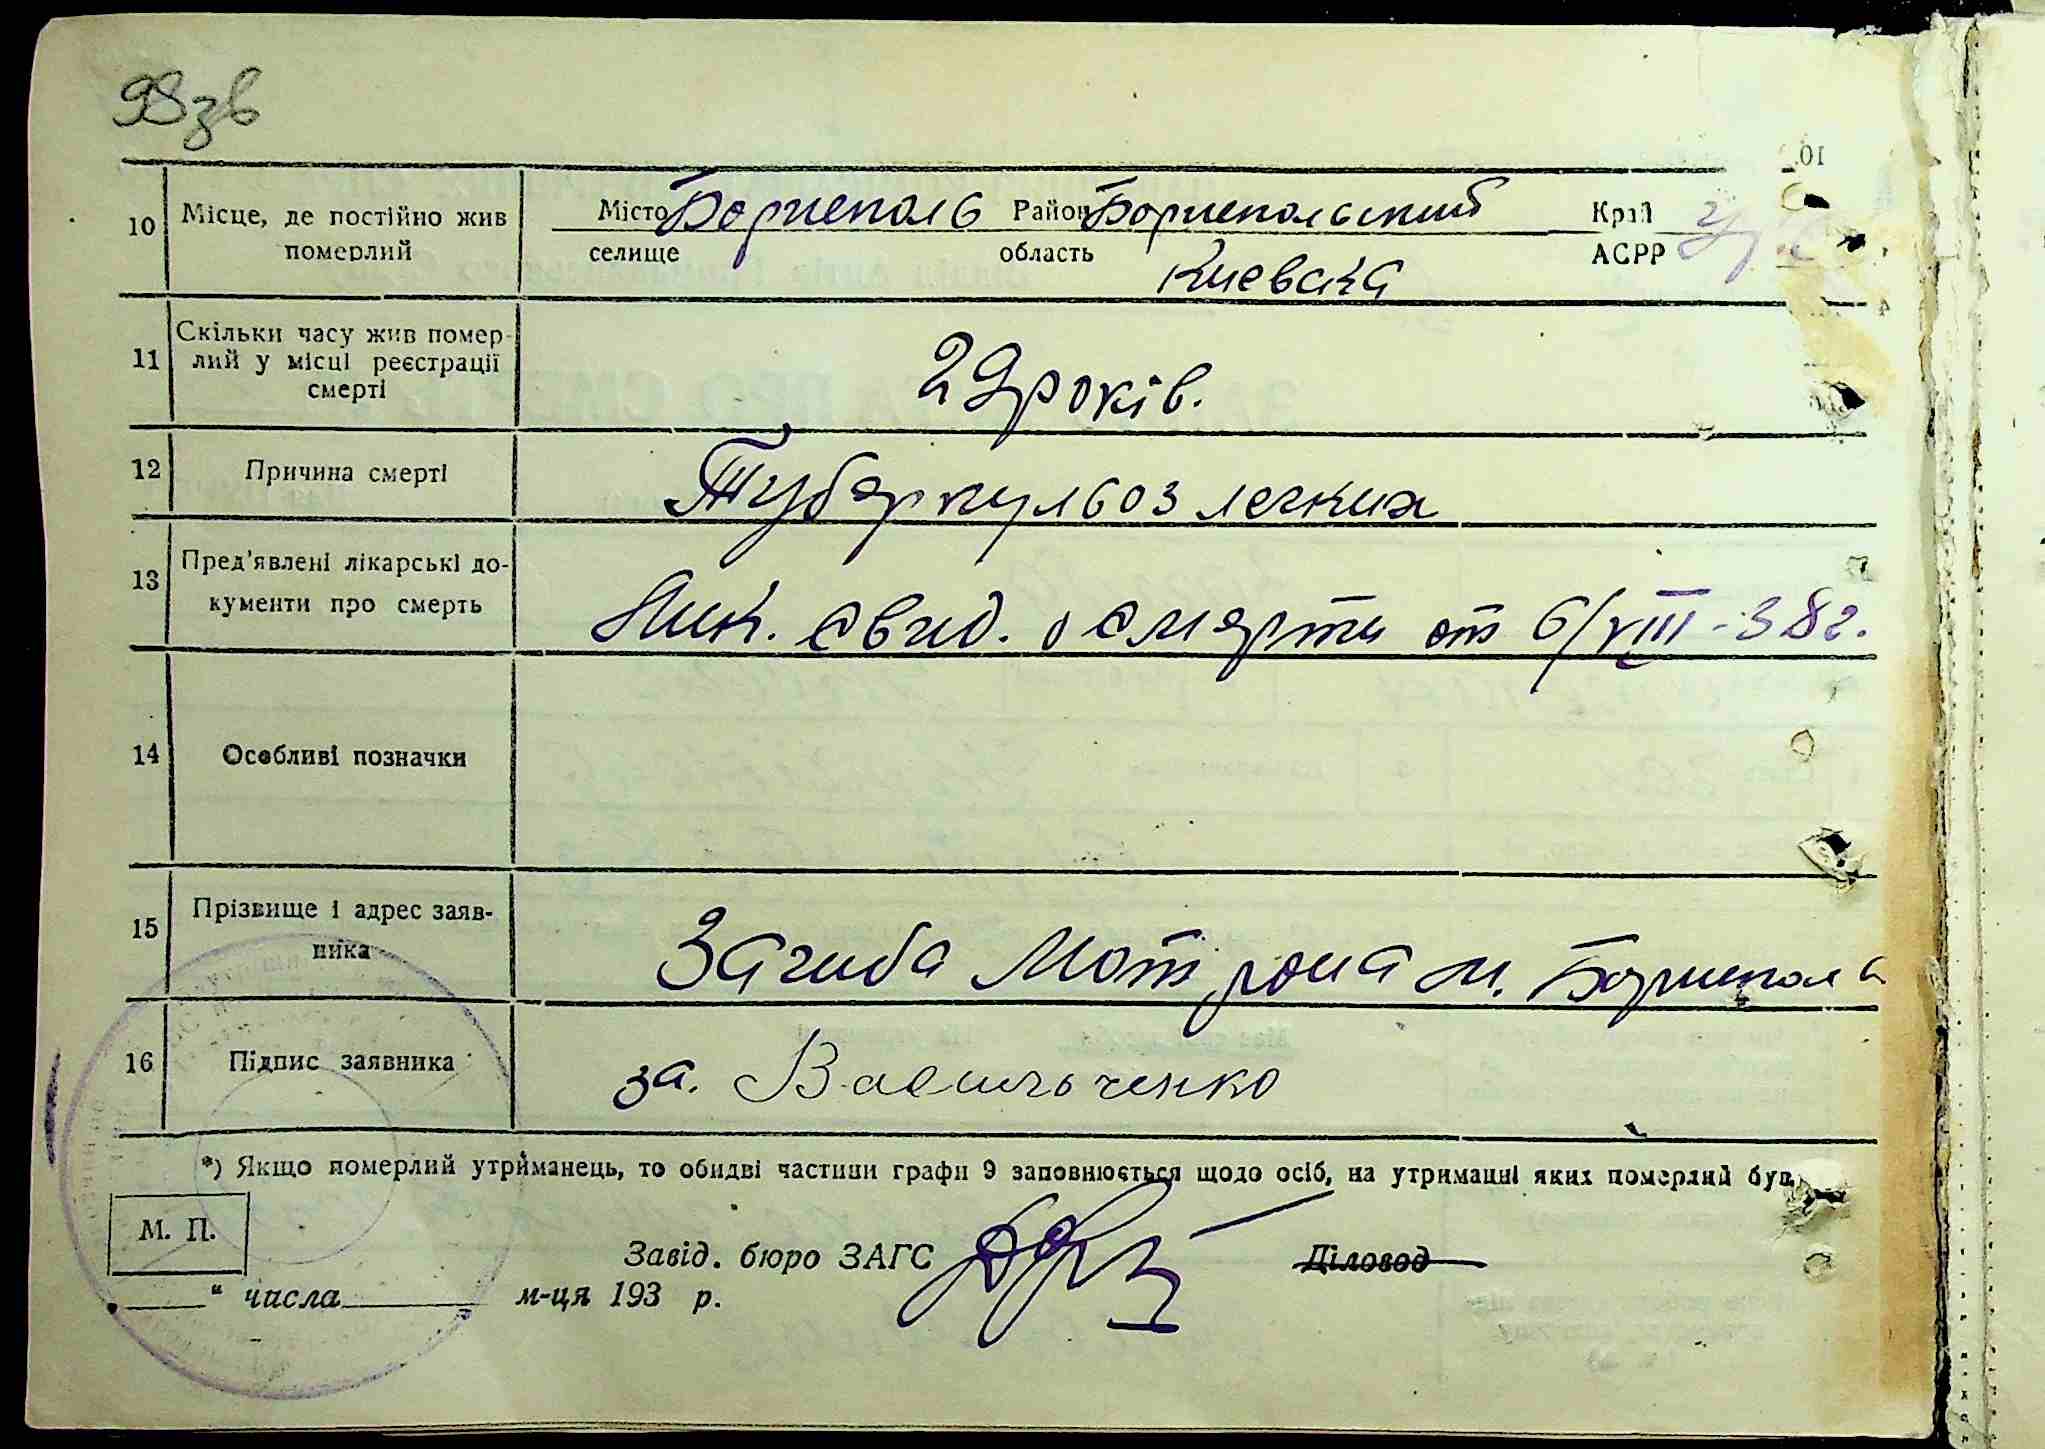 98зв
10 Місце, де постійно жив померлий
Місто Бориспольь Район Бориспольский Край
селище область АСРР
Киевска
11 Скільки часу жив помер-
лий у місці реєстрації
смерті
29 років.
12 Причина смерті
Туберкульоз легких
13 Пред'явлені лікарські до-
кументи про смерть
свид. о смерти от 6/VIII-38г.
14 Особливі позначки
15 Прізвище і адрес заяв-
ника
Загиба Мотрона м. Бориспол
16 Підпис заявника
за. Васильченко
*) Якщо померлий утриманець, то обидві частини графи 9 заповнюється щодо осіб, на утриманні яких померлий був.
М. П.
Завід. бюро ЗАГС Діловод
" числа м-ця 193 р.